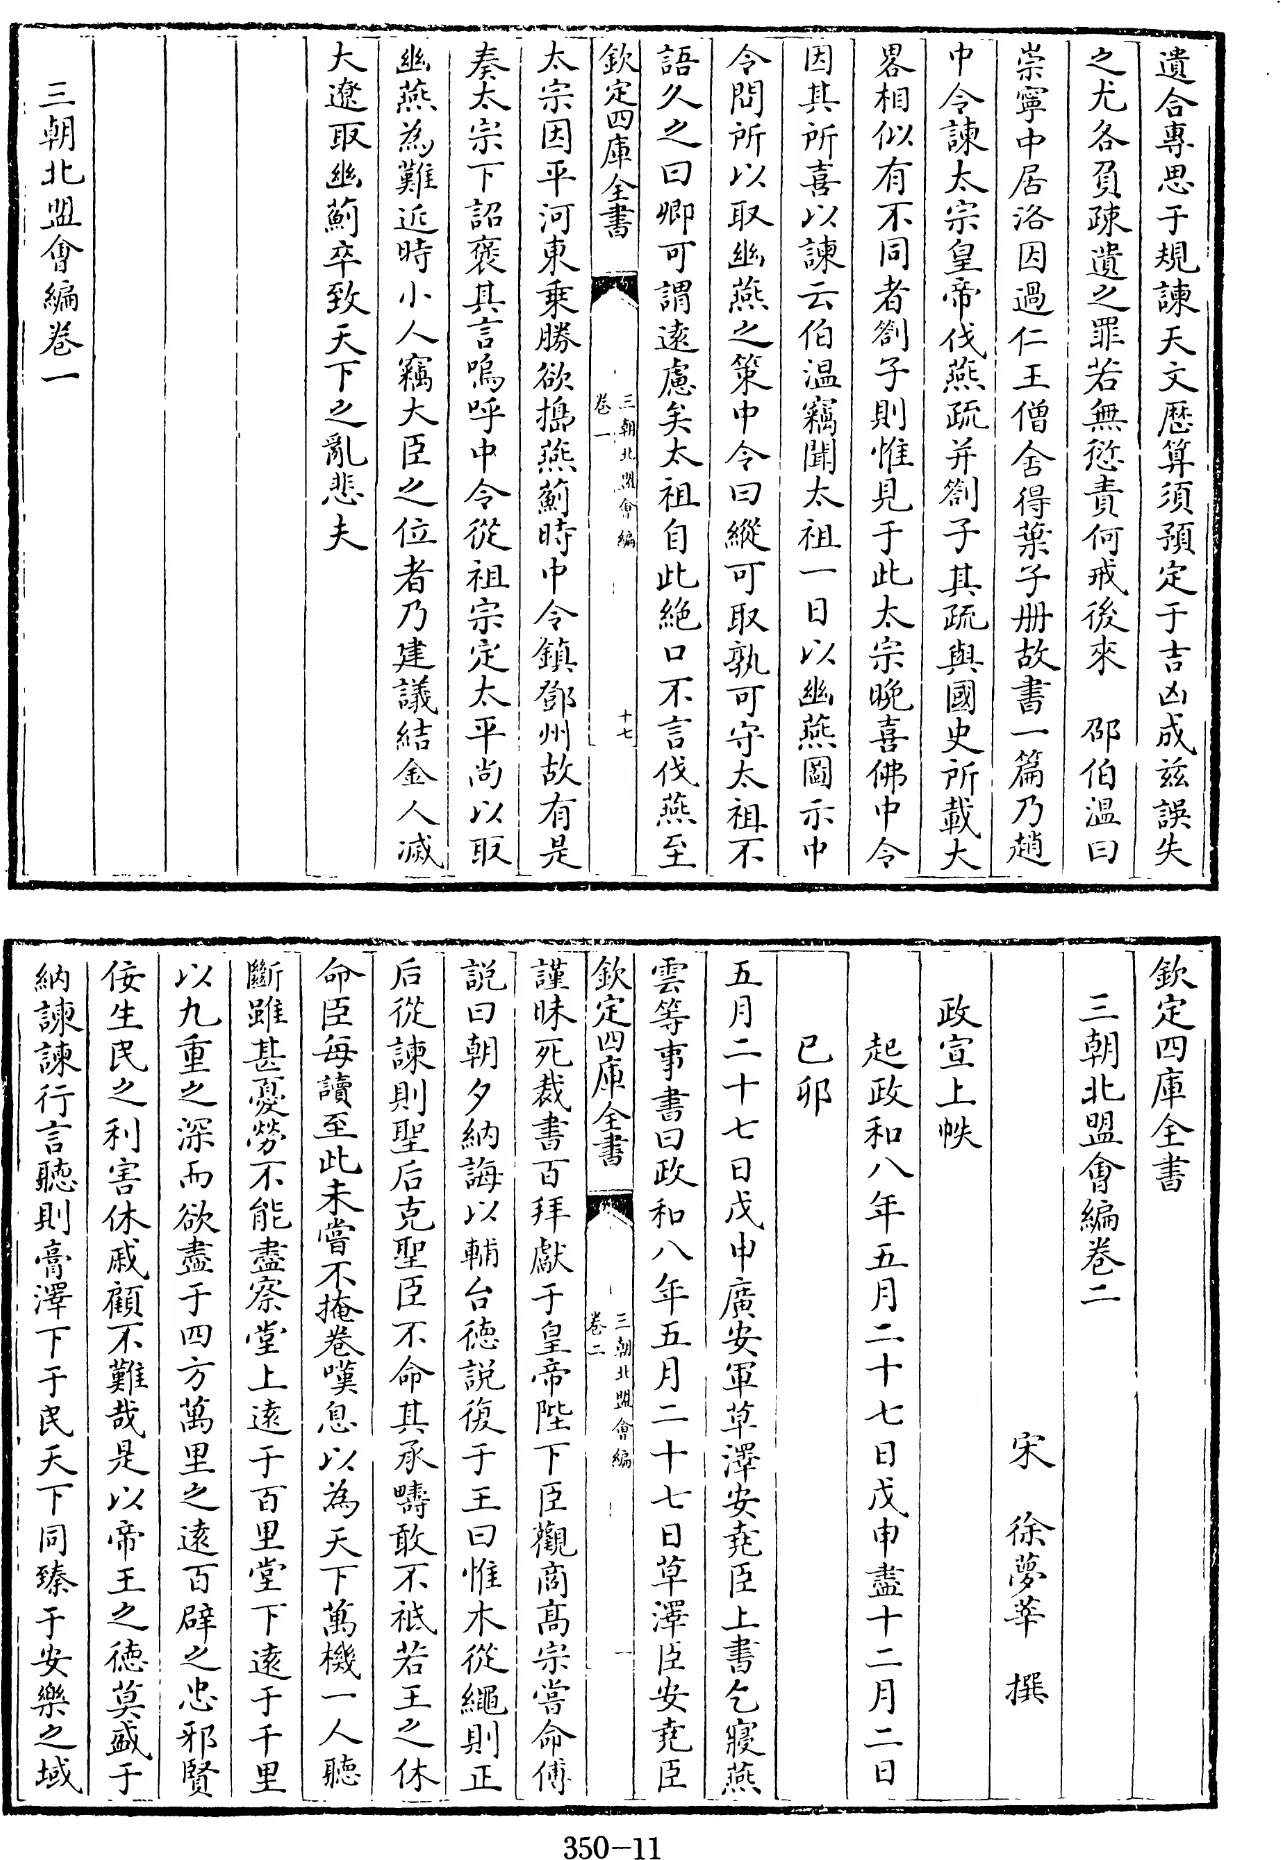 遺合專思于規諫天文歴算須預定于吉凶成兹誤失
之尤各負疎遺之罪若無愆責何戒後來　邵伯温曰
崇寧中居洛因過仁王僧舍得葉子册故書一篇乃趙
中令諫太宗皇帝伐燕疏并劄子其疏與國史所載大
畧相似有不同者劄子則惟見于此太宗晩喜佛中令
因其所喜以諫云伯温竊聞太祖一日以幽燕圖示中
令問所以取幽燕之策中令曰縱可取孰可守太祖不
語久之曰卿可謂逺慮矣太祖自此絶口不言伐燕至
欽定四庫全書
三朝北盟會編
卷一
十七
太宗因平河東乗勝欲搗燕薊時中令鎮鄧州故有是
奏太宗下詔褒其言嗚呼中令從祖宗定太平尚以取
幽燕為難近時小人竊大臣之位者乃建議結金人滅
大遼取幽薊卒致天下之亂悲夫
三朝北盟會編卷一
欽定四庫全書
三朝北盟會編卷二
宋　徐夢莘　撰
政宣上帙
起政和八年五月二十七日戊申盡十二月二日
已邜
五月二十七日戊申廣安軍草澤安堯臣上書乞寢燕
雲等事書曰政和八年五月二十七日草澤臣安堯臣
欽定四庫全書
三朝北盟會編
卷二
一
謹昧死裁書百拜獻于皇帝陛下臣觀商髙宗嘗命傅
説曰朝夕納誨以輔台徳説復于王曰惟木從繩則正
后從諫則聖后克聖臣不命其承疇敢不祗若王之休
命臣每讀至此未嘗不掩卷嘆息以為天下萬機一人聽
斷雖甚憂勞不能盡察堂上逺于百里堂下逺于千里
以九重之深而欲盡于四方萬里之逺百辟之忠邪賢
佞生民之利害休戚顧不難哉是以帝王之徳莫盛于
納諫諫行言聽則膏澤下于民天下同臻于安樂之域
350-11